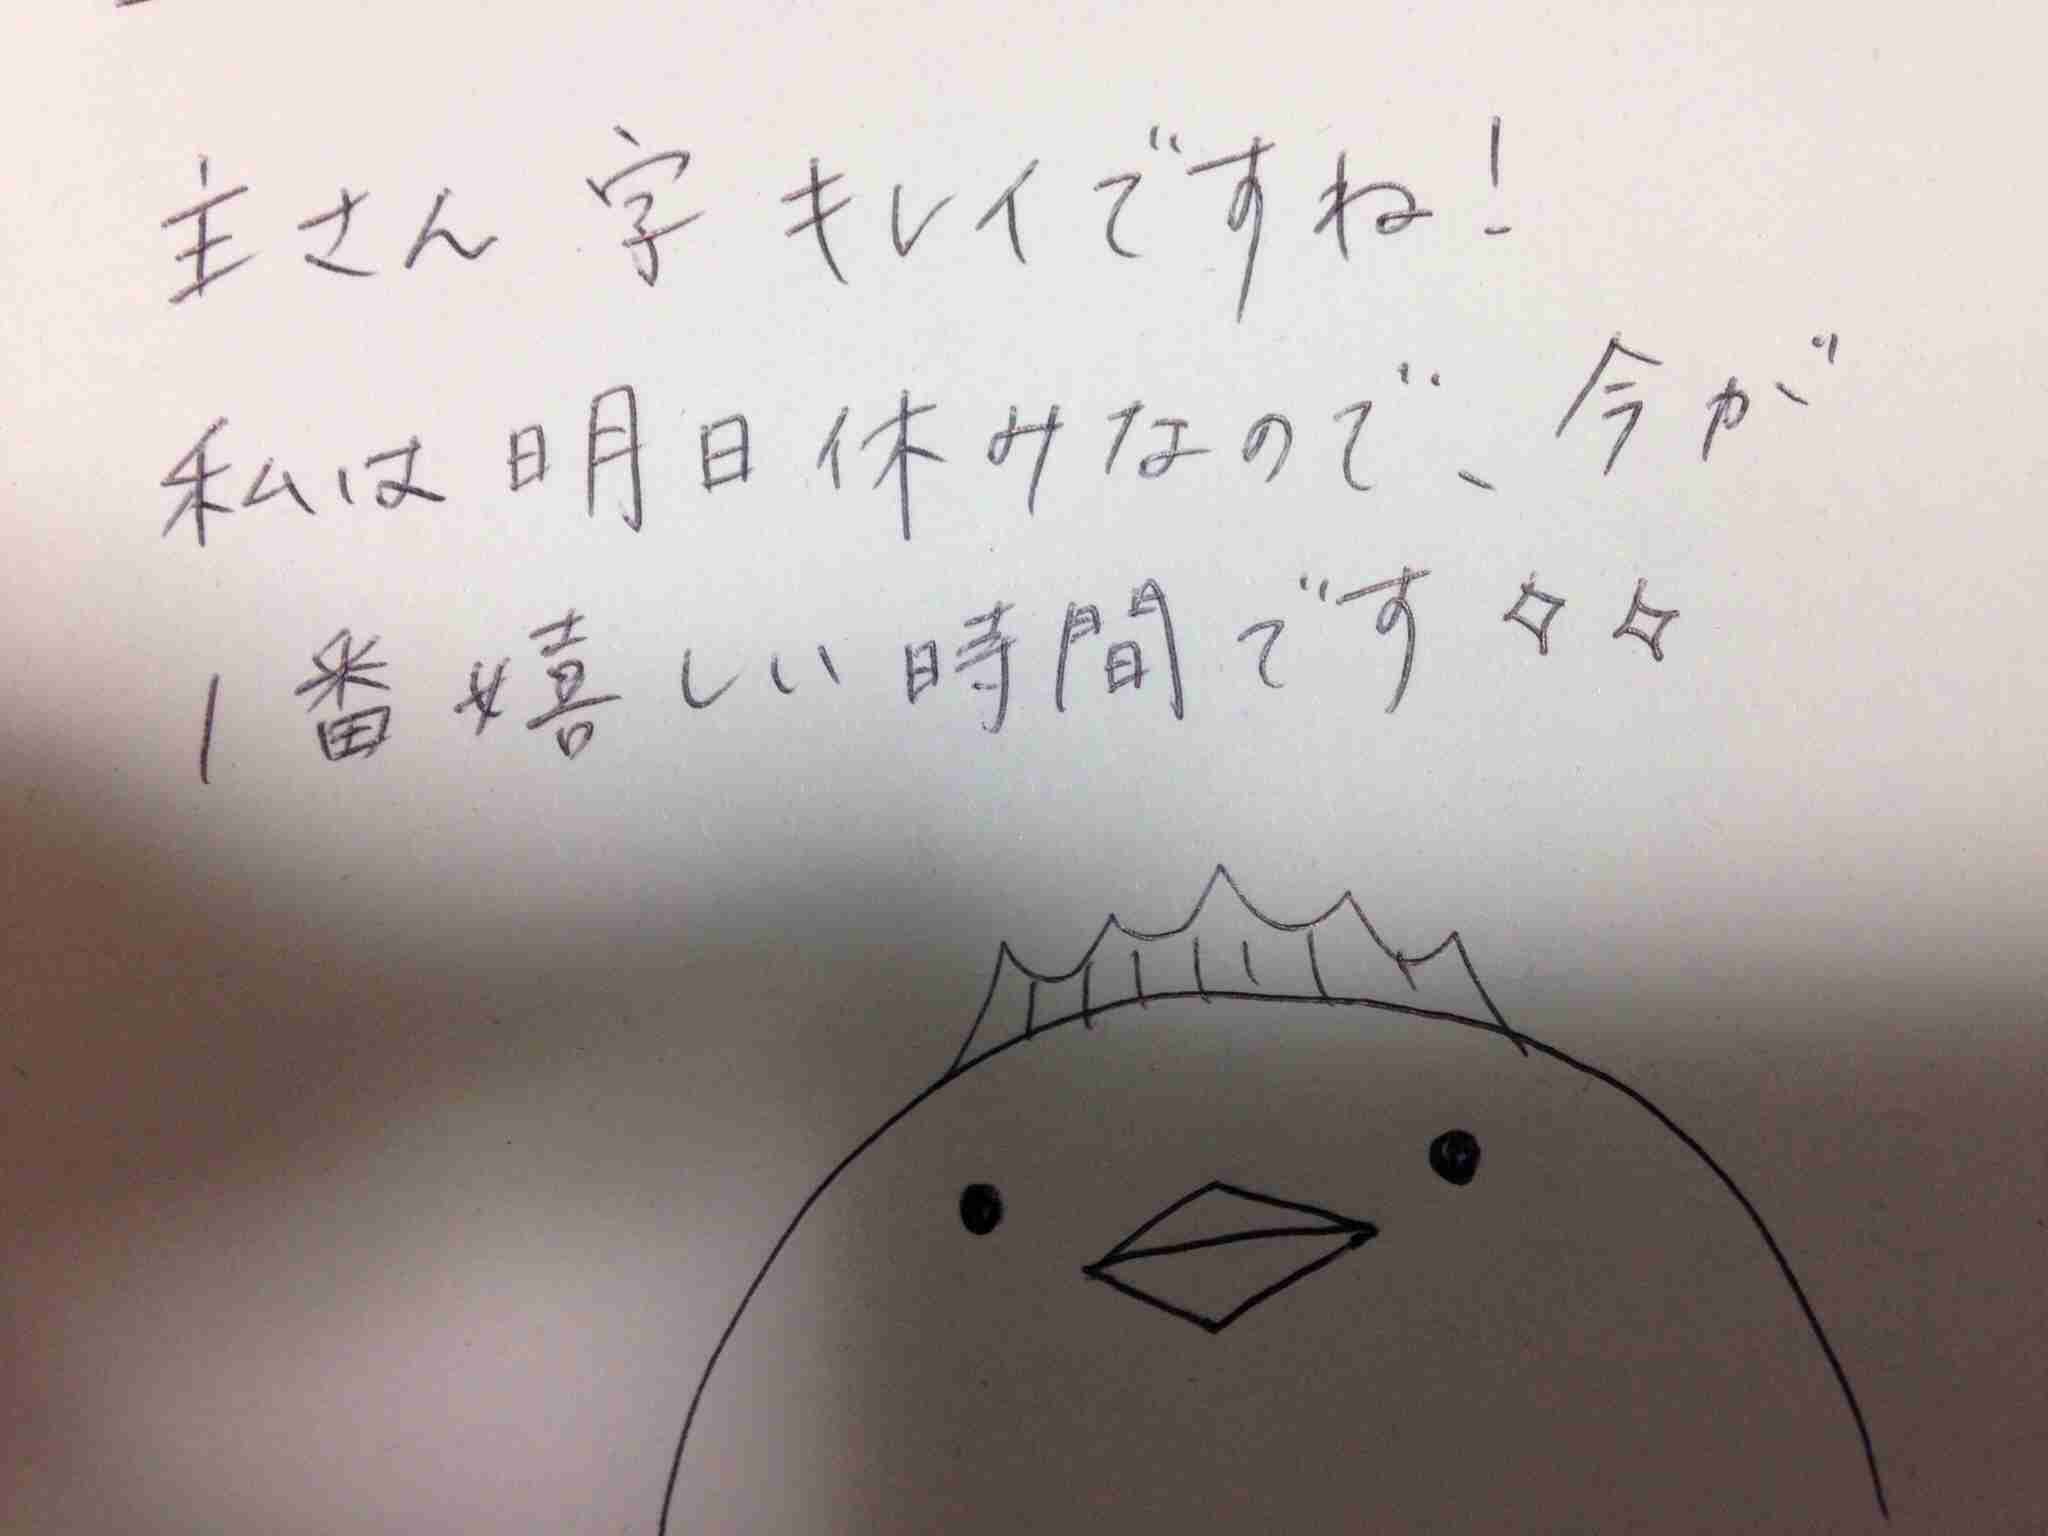 主さん 字 キレイですね!
私は明日休みなので、今が
1番嬉しい時間です✧✧